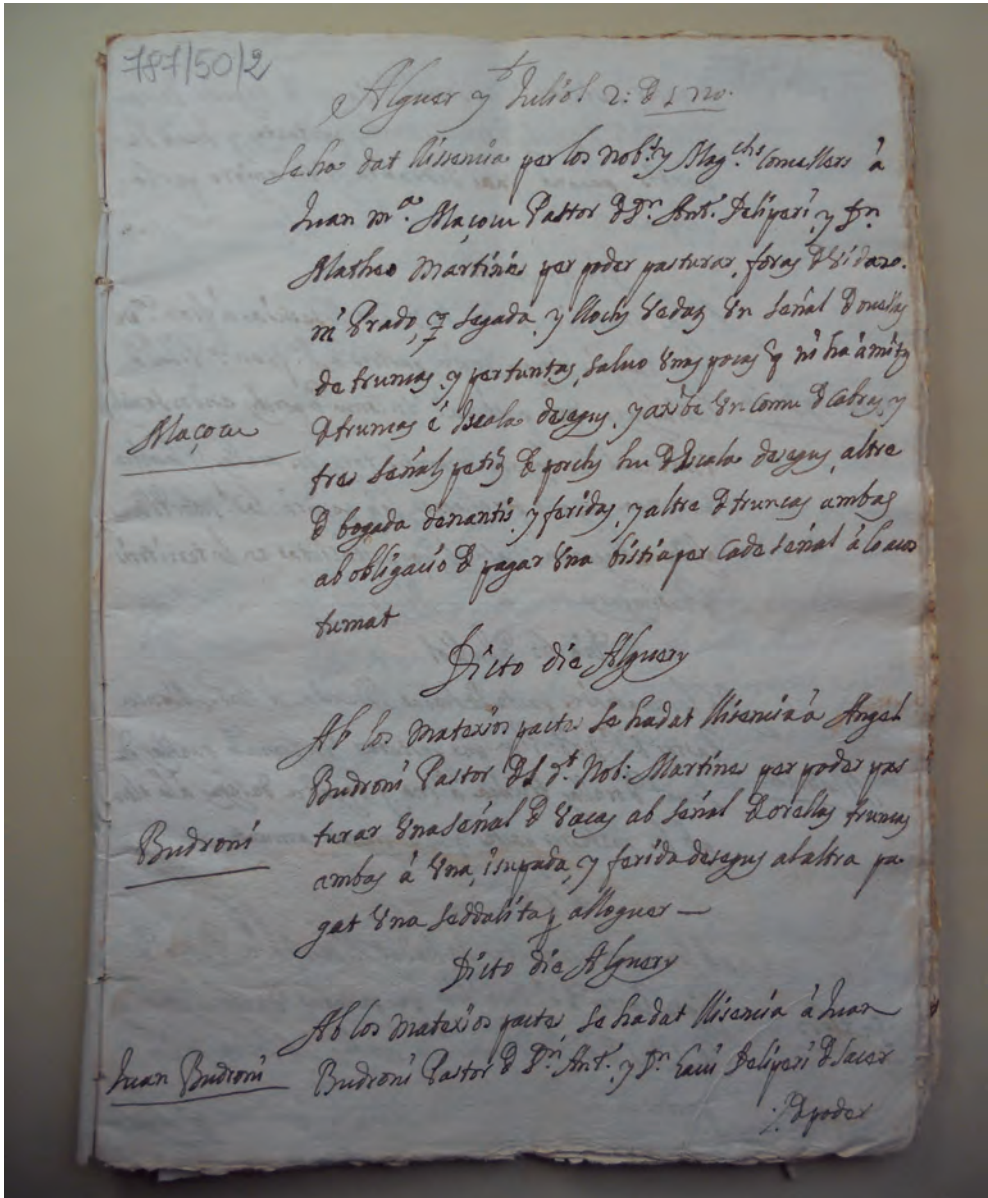 787/50/2
Alguer y Juliol 2: de 1720.
Se ha dat llissensia per los nob.s y Mag.chs Consellers à
Juan m.a Maçoću Pastor de Dn. Ant.t Deliperi, y Dn
Matheo Martines per poder pasturar, foras de Vidazo.
ni Prado, y segada y llochs Vedaz Un señal de ouellas
de truncas y pertuntas, saluo Unas pocas q ni ha à mitz
Maçocu
de truncas è Iscala desegus, y axibe Un Comu de Cabras, y
tres señals petitz de porchs hu de Iscala desegus, altre
de bogada denantis, y feridas, y altre de truncas ambas
ab obligacio de pagar Una bistia per Cade señal à lo acos
tumat
Dicto die Alguery
Ab los matexos pactes se ha dat llisensia à Angel
Budroni Pastor del dt. Nob: Martines per poder pas
turar Una señal de Vacas ab señal de orellas truncas
Budroni
ambas à Una, isupada, y ferida desegus al altra pa-
gat Una seddalitta alloguer —
Dicto die Alguery
Ab los matexos pactes, se ha dat llisensia à Juan
Juan Budroni
Budroni Pastor de Dn. Ant.t y Dn. Gavi Deliperi de Sacer
de poder